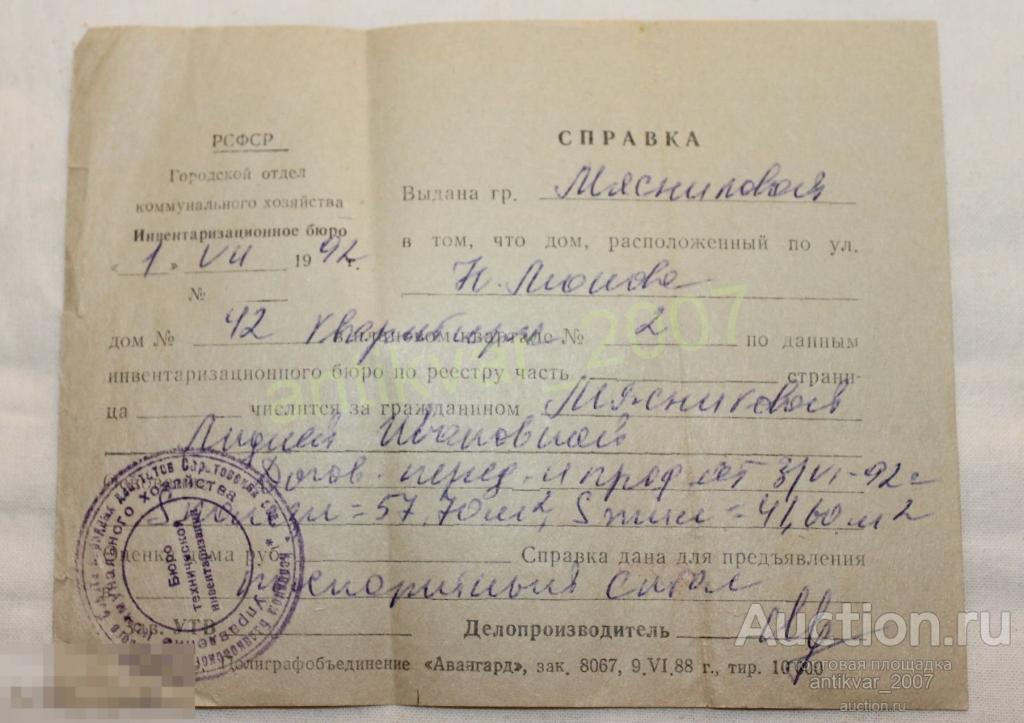 РСФСР
Городской отдел
коммунального хозяйства
Инвентаризационное бюро
«1» VII 1992 г.
№
СПРАВКА
Выдана гр. Мясниковой
в том, что дом, расположенный по ул.
дом № 42 № 2 по данным
инвентаризационного бюро по реестру часть страни-
ца числится за гражданином Мясниковой
Лидией Ивановной
Догов. перед. и прод. от 3/VI-92 г
= 57,70 м2, S жил = 41,60 м2
Оценка дома руб. Справка дана для предъявления
Зав. УТВ
Делопроизводитель
Полиграфобъединение «Авангард», зак. 8067, 9.VI.88 г., тир. 10 000
коммунального хозяйства
Управление
Бюро
технической
инвентаризации
antikvar_2007
Auction.ru
торговая площадка
antikvar_2007
auction.ru